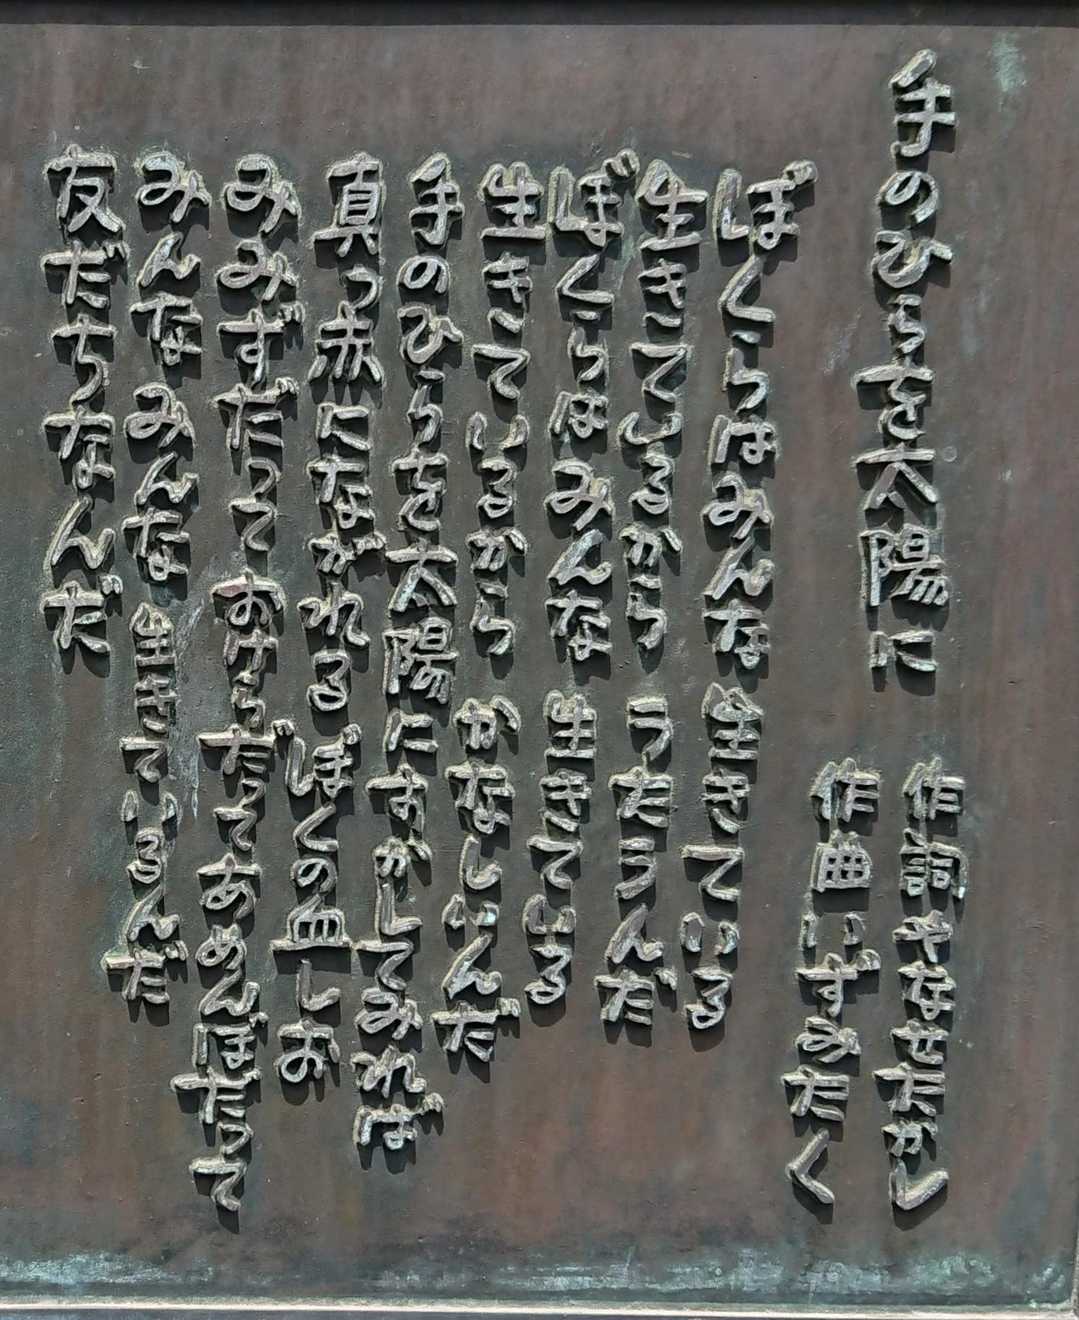 手のひらを太陽に
作詞 やなせたかし
作曲 いずみたく
ぼくらはみんな 生きている
生きているから うたうんだ
ぼくらはみんな 生きている
生きているから かなしいんだ
手のひらを太陽にすかしてみれば
真っ赤にながれる ぼくの血しお
みみずだって おけらだって あめんぼだって
みんな みんな 生きているんだ
友だちなんだ